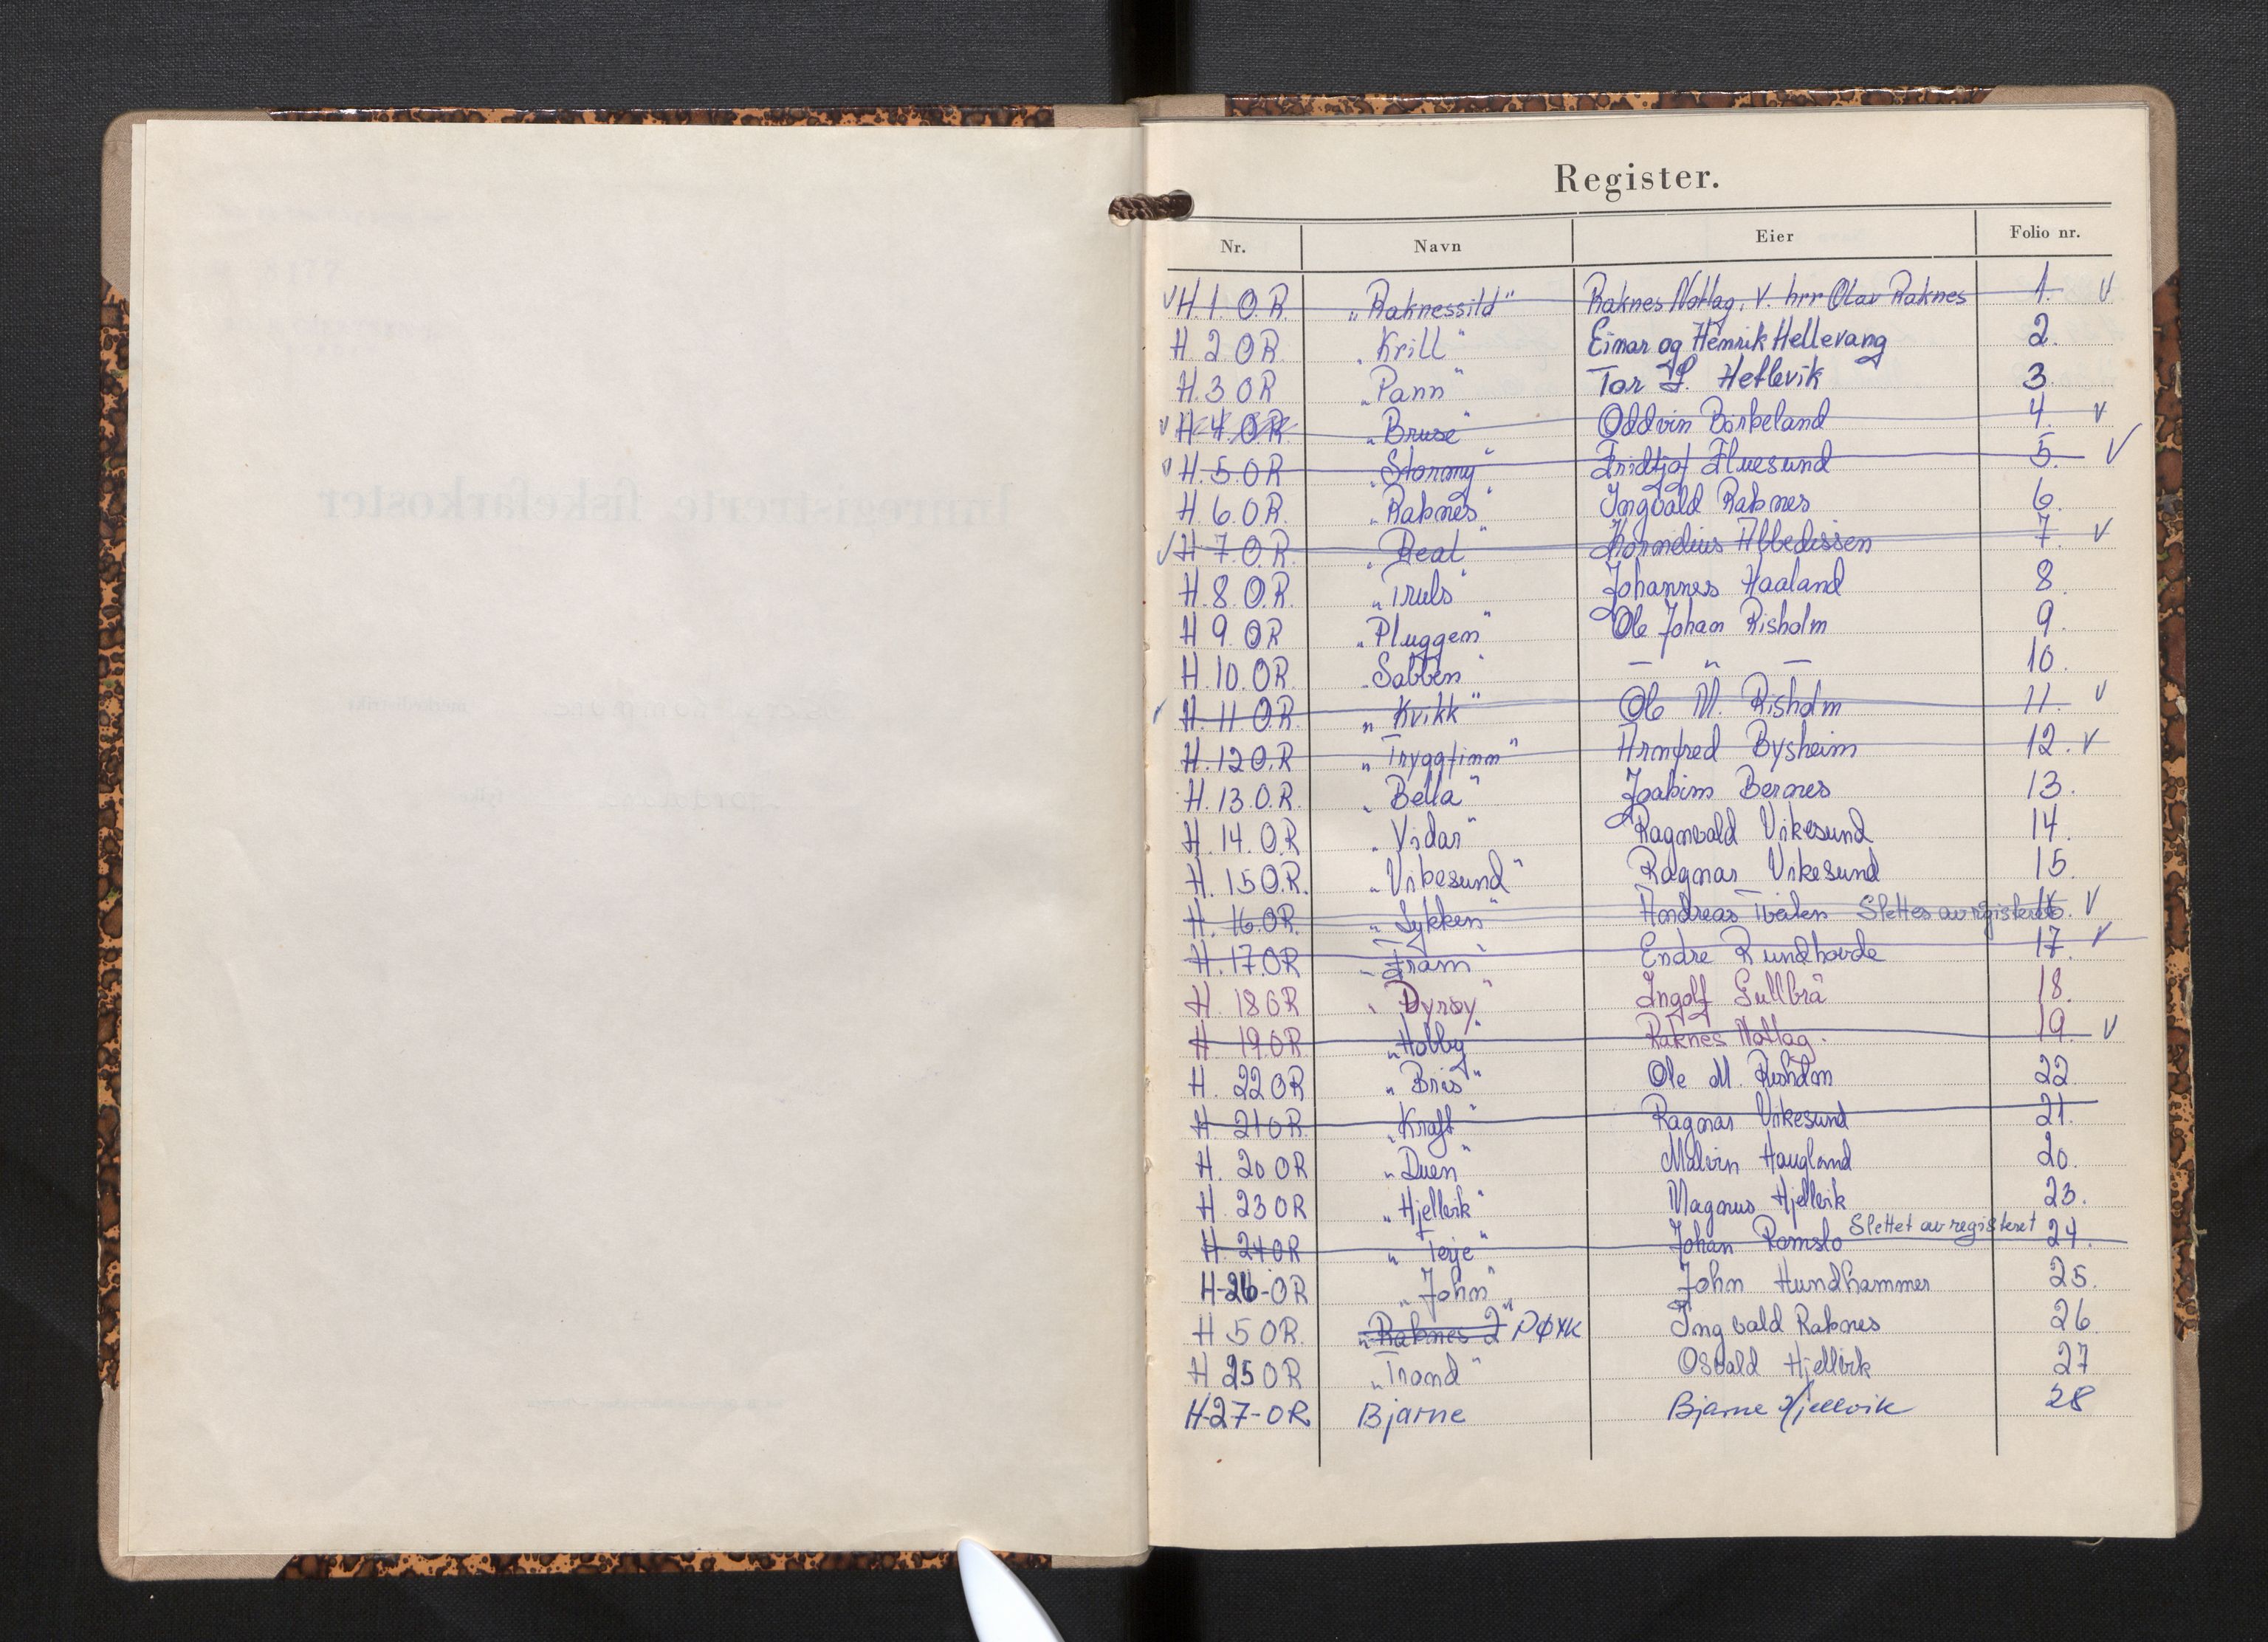 Register.
Nr. Navn Eier Folio nr.
√ H. 1. O.R. „Raknessild" Raknes Notlag. v. hrr Olav Raknes 1. √
H. 2 OR. „Krill" Einar og Henrik Hellevang 2.
H. 3 OR „Pann" Tor L. Hetlevik 3
√ H. 4. OR. „Bruse" Oddvin Birkeland 4. √
√ H. 5. OR „Stormy" Fridtjof 5. √
H. 6. OR. „Raknes" Ingvald Raknes 6.
√ H. 7. O.R. „Real" Kornelius Abbedissen 7. √
H. 8. O.R. „Truls" Johannes Haaland 8.
H 9. OR „Pluggen" Ole Johan Risholm 9.
H. 10. OR. „Sabben" — " — 10.
√ H. 11. O.R. „Kvikk" Ole M. Risholm 11. √
H. 12 O.R „Tryggfinn" Arnfred Bysheim 12. √
H. 13. O.R. „Bella" Joakim Bernes 13.
H. 14. O.R „Vidar" Ragnvald Vikesund 14.
H. 15 O.R. „Vikesund" Ragnar Vikesund 15.
H. 16. OR. „Lykken" Andreas Tveiten Slettes av registeret 16. √
H. 17. OR „Fram" Endre Rundhovde 17. √
H. 18 OR „Dyrøy" Ingolf Gullbrå 18.
H 19. OR „Hobby" Raknes Notlag. 19. √
H. 22 OR „Bris" Ole M. Risholm 22.
H 21 OR. „Kraft" Ragnar Vikesund 21.
H. 20 OR „Duen" Malvin Haugland 20.
H. 23 OR „Hjellvik" Magnus Hjellvik 23.
H. 24 OR „Terje" Johan Romslo Slettet av registeret 24.
H-26-OR „John" John Hundhammer 25.
H 5 OR. „Raknes 2" RØYK Ingvald Raknes 26
H 25 OR „Trond" Osvald Hjellvik 27
H-27-OR Bjarne Bjarne Hjellvik 28